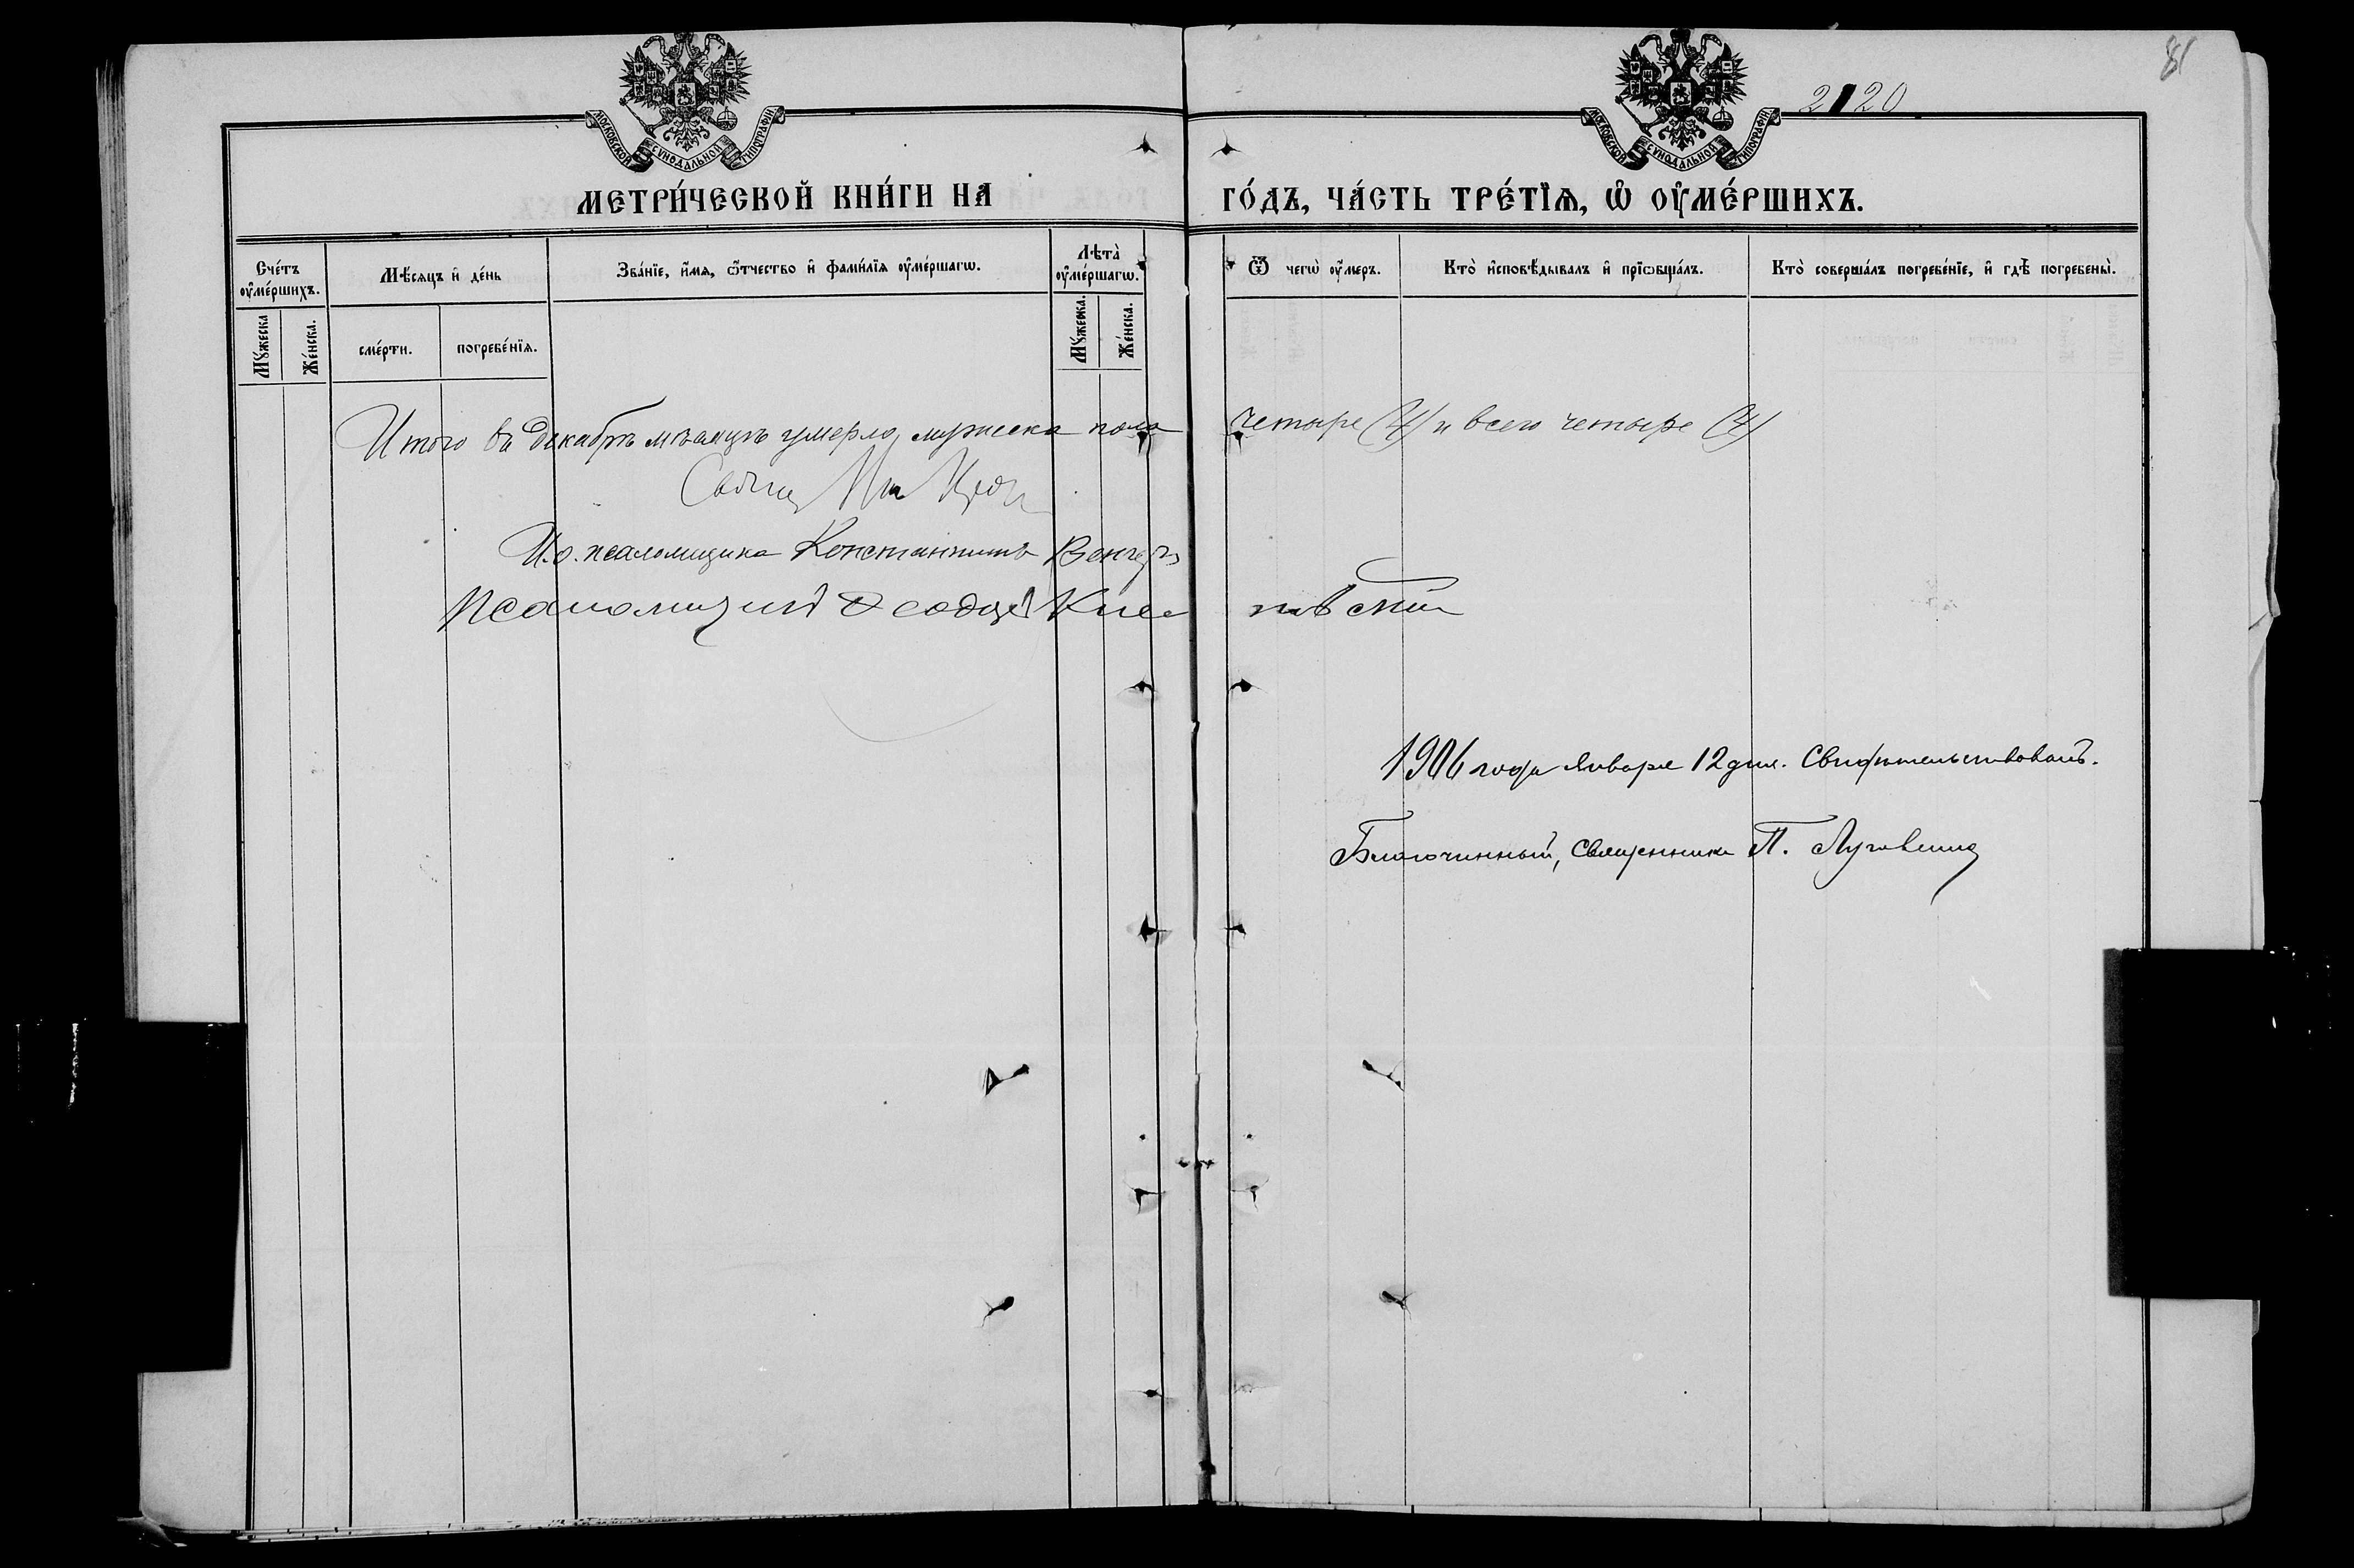 81
2120
МОСКОВСКОЙ СѴНОДАЛЬНОЙ ТИПОГРАФІИ
МОСКОВСКОЙ СѴНОДАЛЬНОЙ ТИПОГРАФІИ
МЕТРИ́ЧЕСКОЙ КНИ́ГИ НА ГО́ДЪ, ЧА́СТЬ ТРЕ́ТІѦ, Ѡ҆ ОУ҆МЕ́РШИХЪ.
Сче́тъ оу҆ме́ршихъ.
Мѣ́сяцъ и҆ де́нь
Зва́нїе, и҆́мя, ѻ҆́тчество и҆ фами́лїѧ оу҆ме́ршагѡ.
Лѣта̀ оу҆ме́ршагѡ.
Ѿ чегѡ̀ оу҆́меръ.
Кто̀ и҆сповѣ́дывалъ и҆ прїѡбща́лъ.
Кто̀ соверша́лъ погребе́нїе, и҆ гдѣ̀ погребены̀.
Мꙋ́жеска
Же́нска.
сме́рти.
погребе́нїѧ.
Мꙋ́жеска.
Же́нска.
Итого въ декабрѣ мѣсяцѣ умерло мужеска пола четыре (4) и всего четыре (4)
И. о. псаломщика Константинъ
Псаломщикъ Ѳеодос
1906 года Января 12 дня. Свидѣтельствовалъ.
Благочинный, Священникъ П.